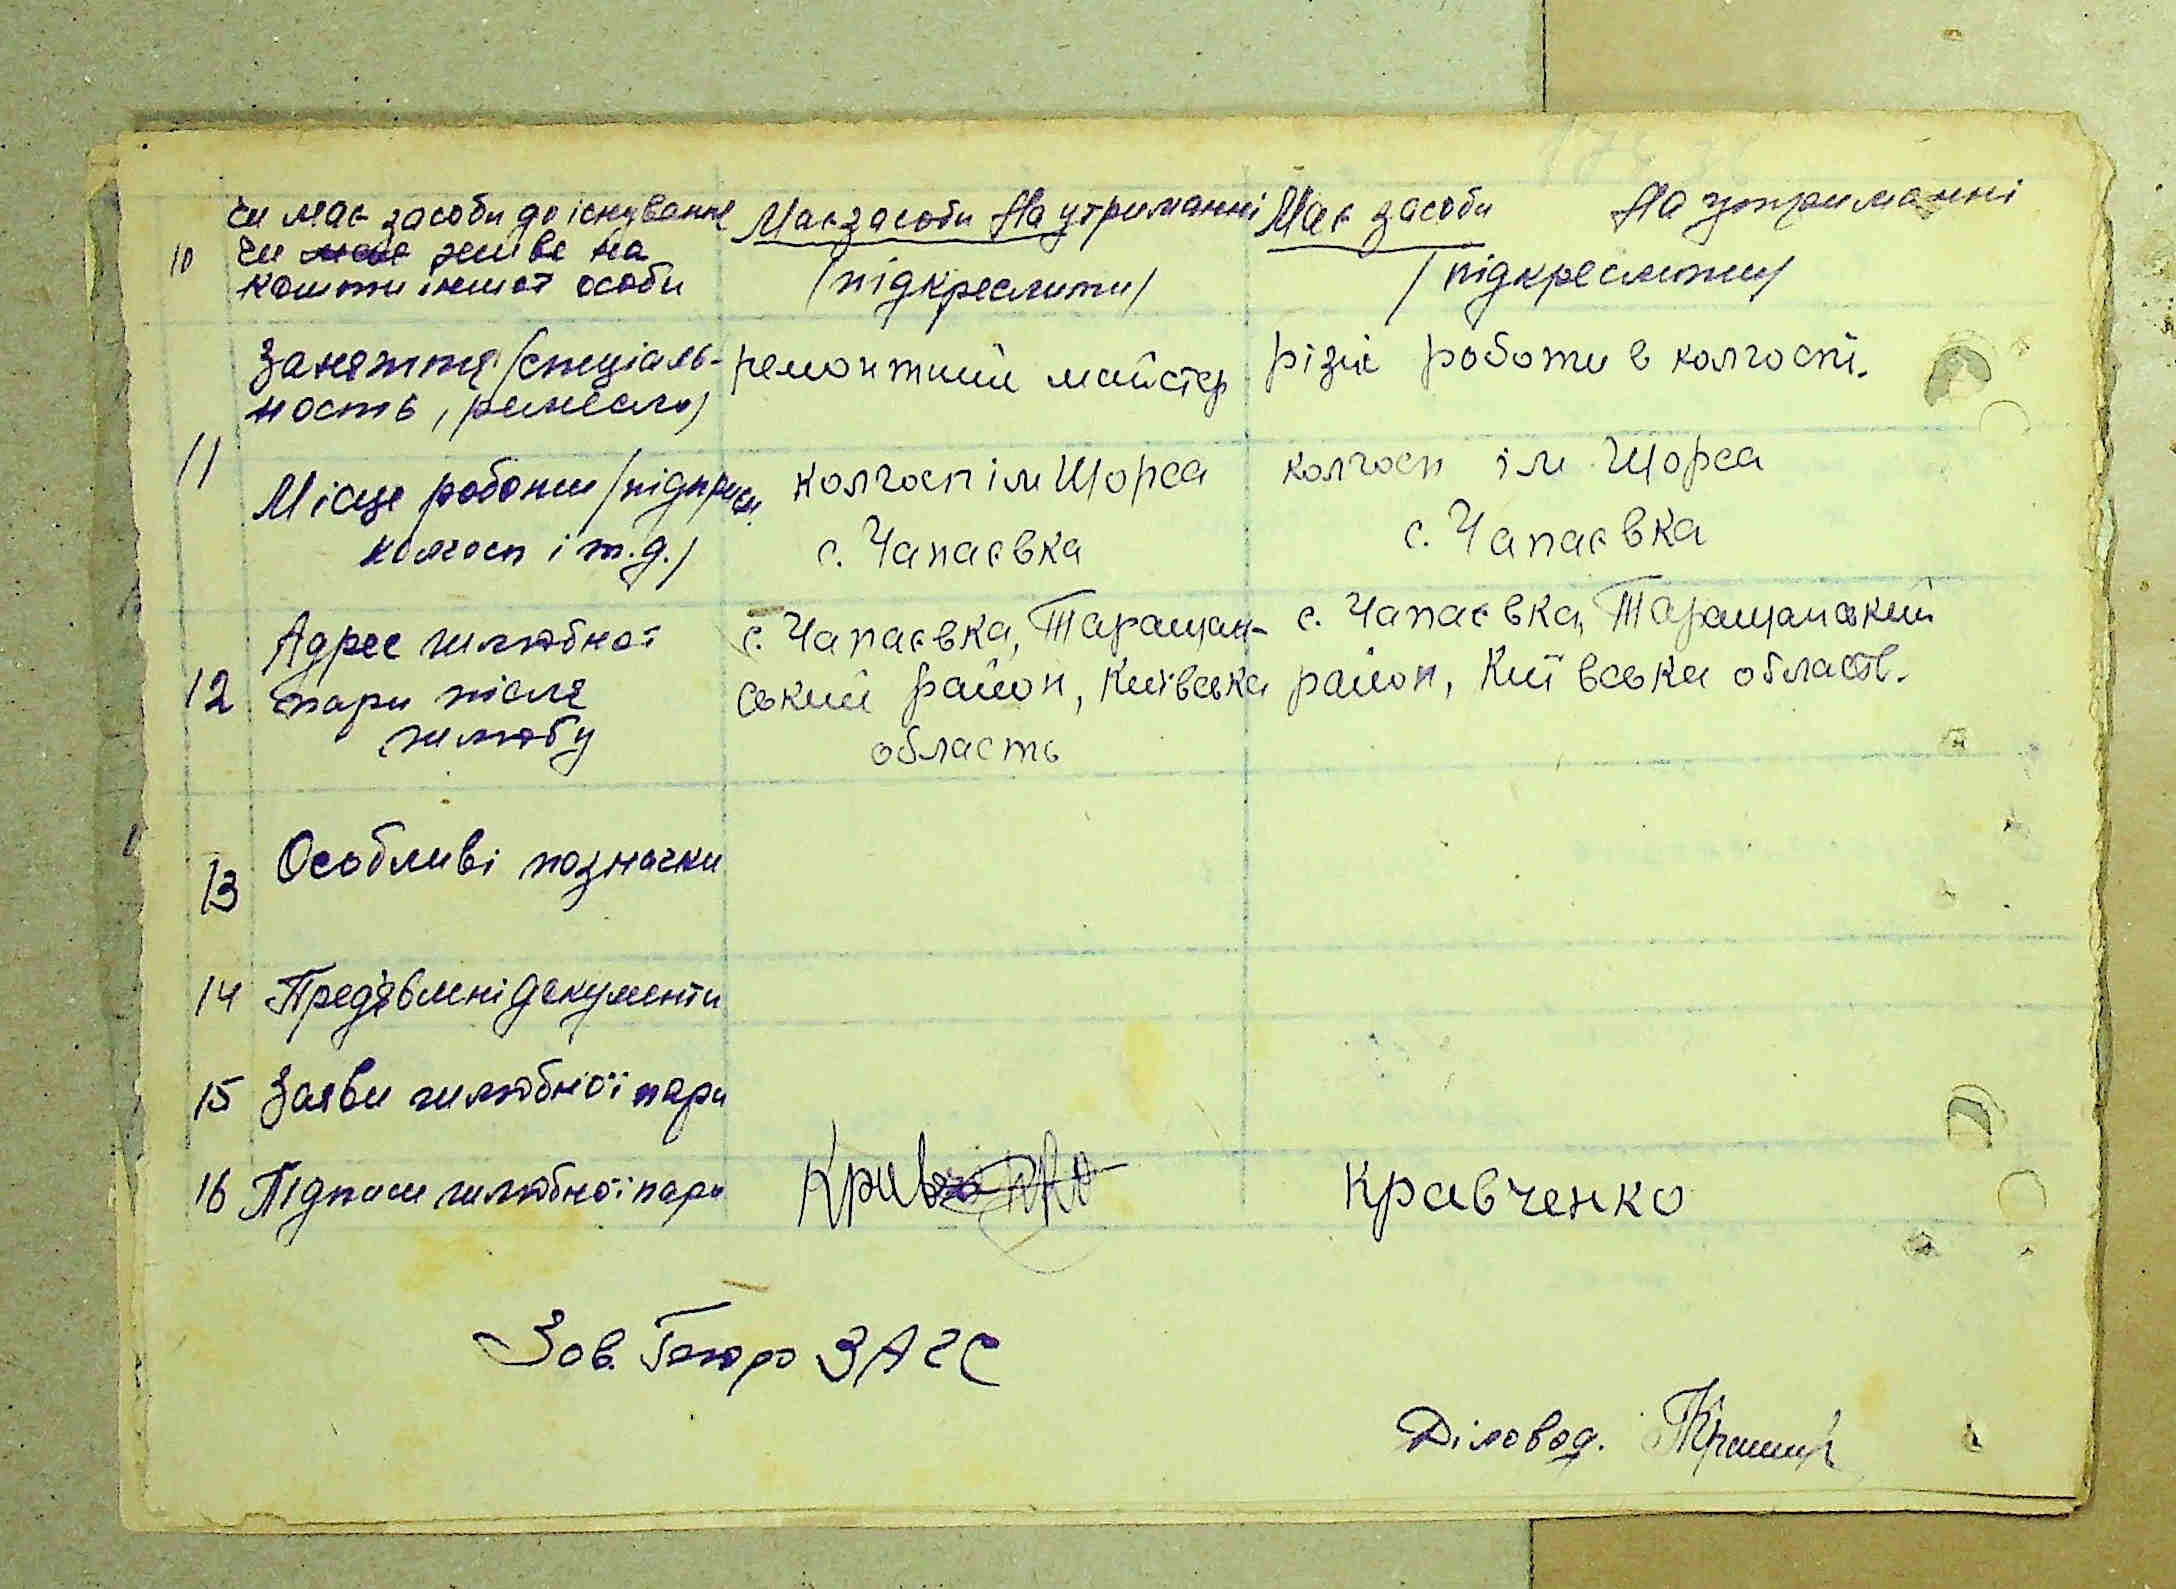 чи має засоби до існування Має засоби На утриманні Має засоби На утриманні
10 чи живе на
кошти іншої особи /підкреслити/ /підкреслити/
Заняття /спеціаль- ремонтний майстер різні роботи в колгоспі.
ность, ремесло/
11
Місце роботи /підприєм. колгосп ім Щорса колгосп ім Щорса
колгосп і т.д./ с. Чапаєвка с. Чапаєвка
Адрес шлюбної с. Чапаєвка, Таращан- с. Чапаєвка, Таращанський
12 пари після ський район, Київська район, Київська область.
шлюбу область
13 Особливі позначки
14 Пред'явлені документи
15 Заяви шлюбної пари
16 Підписи шлюбної пари Кравченко
Зав. Бюро ЗАГС
Діловод.